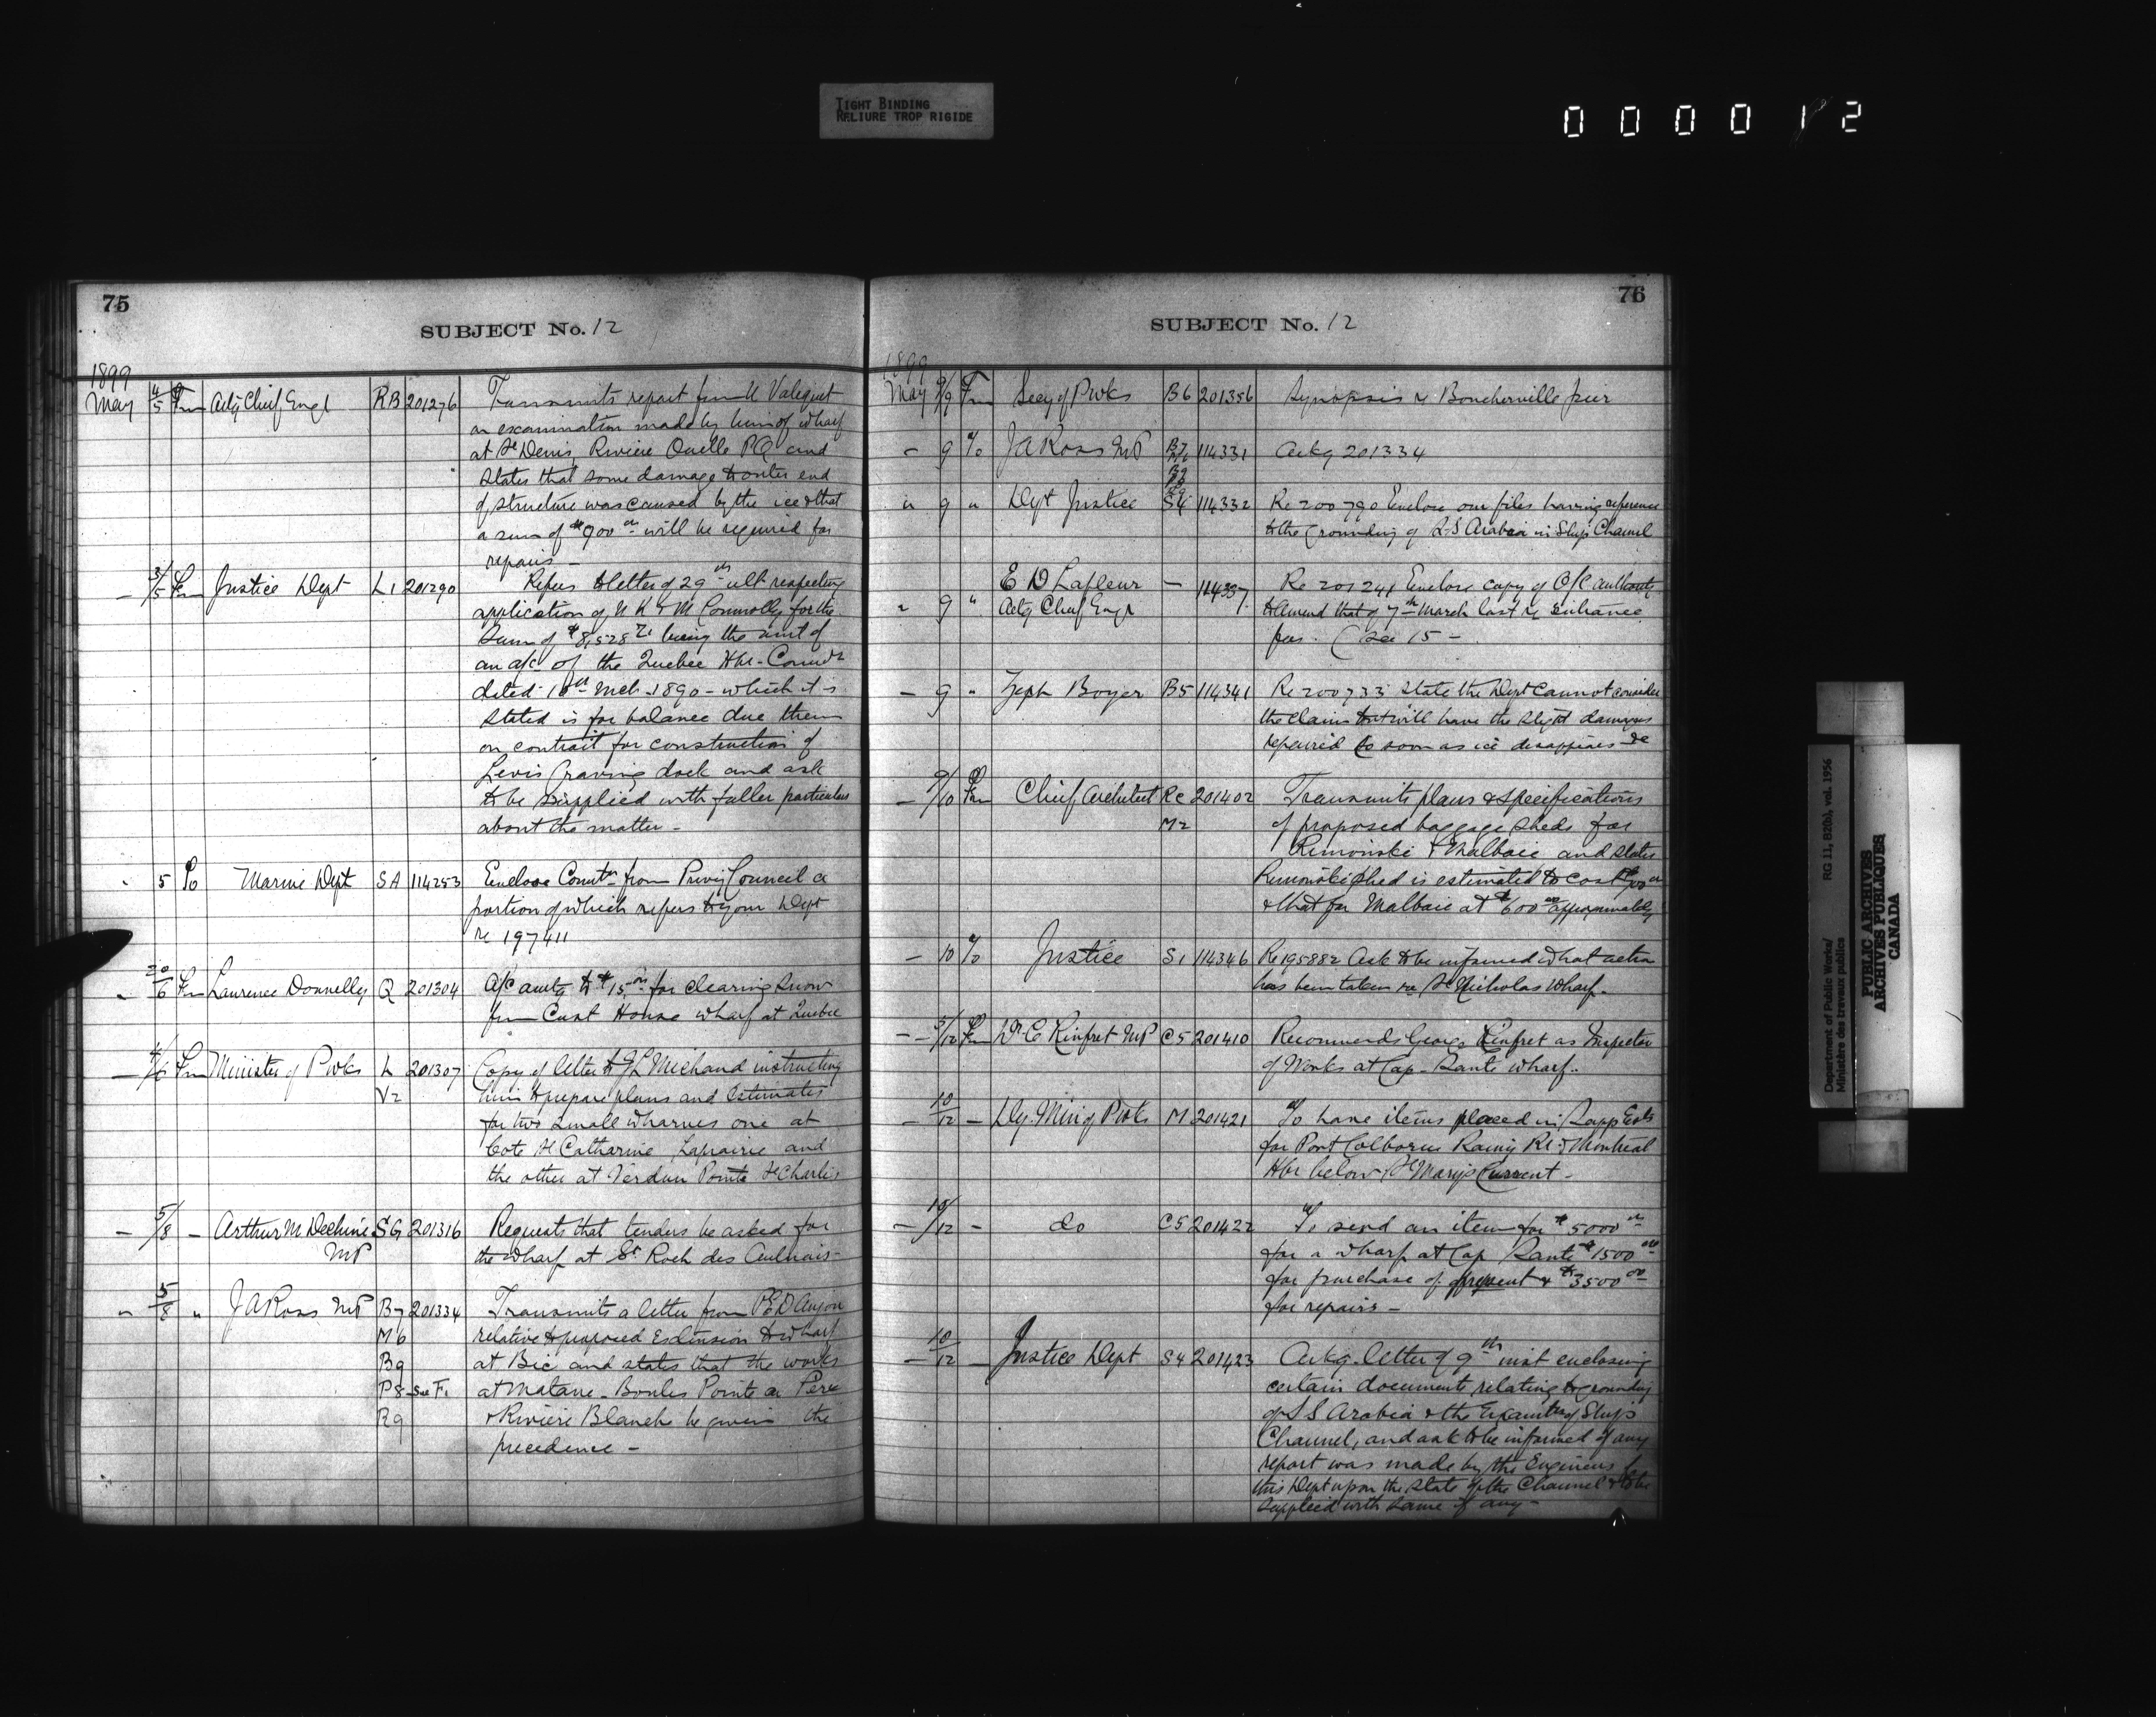 TIGHT BINDING
RELIURE TROP RIGIDE
000012
75
SUBJECT No. 12
1899
May 4/5 Fm Actg Chief Engr RB 201276 Transmits report from U Valiquet
on examination made by him of wharf
at St Denis, Riviere Ouelle PQ and
states that some damage to outer end
of structure was caused by the ice & that
a sum of $900 00 will be required for
repairs -
- 3/5 Fm Justice Dept L1 201290 Refers to letter of 29th ult respecting
application of N K & M Connolly for the
sum of $8,528 being the amt of
an a/c of the Quebec Hbr- Comrs
dated 10th Mch - 1890 - which it is
stated is for balance due them
on contract for construction of
Levis Graving dock and ask
to be supplied with fuller particulars
about the matter -
" 5 To Marine Dept SA 114253 Enclose Comtn from Privy Council a
portion of which refers to your Dept
re 197411
" 20/6 Fm Laurence Donnelly Q 201304 A/c amtg to $15 00 for clearing snow
from Cust House wharf at Quebec
- 4/6 Fm Minister of P Wks L 201307 Copy of letter to JL Michaud instructing
V2 him to prepare plans and Estimates
for two small wharves one at
Cote St Catharine, Laprairie and
the other at Verdun Pointe St Charles
- 5/8 - Arthur M Dechene SG 201316 Requests that tenders be asked for
MP the wharf at St Roch des Aulnais -
" 5/8 " JA Ross MP B7 201334 Transmits a letter from D Anjou
M6 relative to proposed Extension to wharf
B9 at Bic and states that the works
P8 - See F1 at Matane - Boules Pointe au Pere
R9 & Riviere Blanche be given the
precedence -
76
SUBJECT No. 12
1899
May 9/9 Fm Secy of P Wks B6 201356 Synopsis re Boucherville pier
- 9 To JA Ross MP B7 114331 Ackg 201334
" 9 " Dept Justice S4 114332 Re 200790 Enclose our files having reference
to the Grounding of S.S Arabia in Ship Channel
" 9 " E D Lafleur - 114337 Re 201241 Enclose copy of O/C authority
Actg Chief Engr to amend that of 7th March last re Entrance
fees. (See 15 -
- 9 " Zeph Boyer B5 114341 Re 200733 state the Dept cannot consider
the claim but will have the slight damages
repaired so soon as ice disappears &c
- 9/10 Fm Chief Architect Re 201402 Transmits plans & specifications
M2 of proposed baggage sheds for
Rimouski & Malbaie and states
Rimouski shed is estimated to cost
& that for Malbaie at $600 00 approximately
- 10 To Justice S1 114346 Re 195882 Ask to be informed what action
has been taken re St Nicholas Wharf.
- 5/10 Fm Dr C Rinfret MP C5 201410 Recommends George Rinfret as Inspector
of Works at Cap - Santé wharf.
- 10/12 - Dy. Min of P Wks M 201421 To have items placed in Supp Ests
for Port Colborne Rainy Rr & Montreal
Hbr below St Mary's Current -
- 10/12 - do C5 201422 To send an item for $5000 00
for a wharf at Cap Santé $1500 00
for purchase of present & $3500 00
for repairs -
- 10/12 - Justice Dept S4 201423 Ackg. letter of 9th inst enclosing
certain documents relating to grounding
of S S Arabia & the of Ship
Channel, and ask to be informed if any
report was made by the Engineers of
this Dept upon the state of the Channel & to be
supplied with same if any -
Department of Public Works/
Ministère des travaux publics
RG 11, B2(b), vol. 1956
PUBLIC ARCHIVES
ARCHIVES PUBLIQUES
CANADA